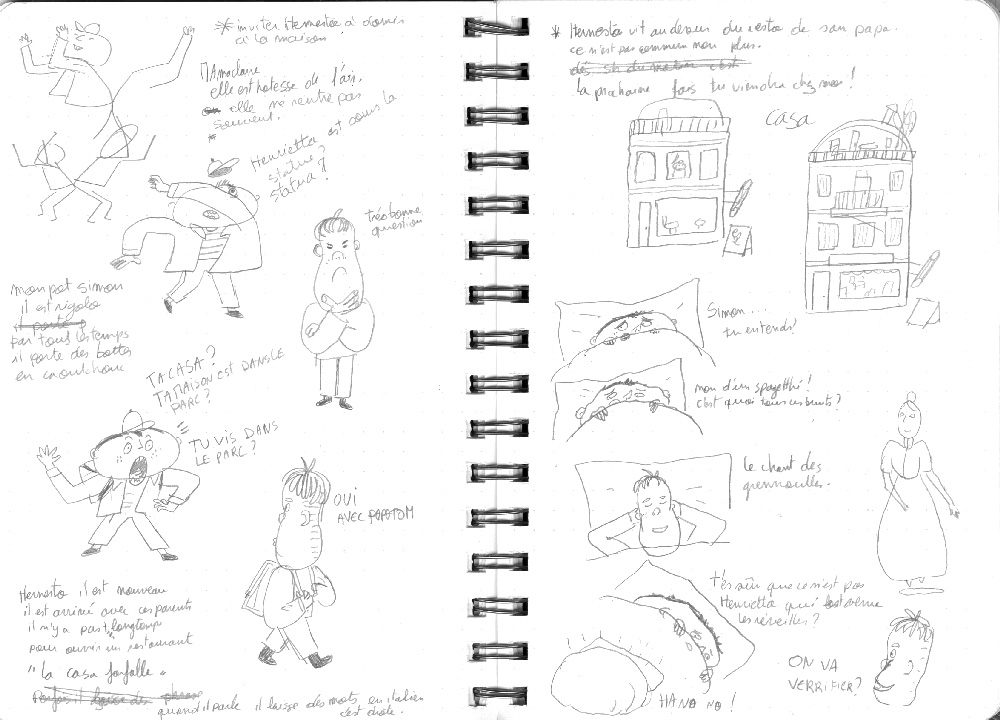 * inviter Hernesto à dormir
à la maison.
Madame
elle est hotesse de l'air.
elle ne rentre pas
souvent.
*
Henrietta est cous la
statue?
státua?
très bonne
question
mon pot Simon
il est rigolo
il porte
par tous les temps
il porte des bottes
en caoutchouc
TA CASA?
TA MAISON EST DANS LE
PARC?
TU VIS DANS
LE PARC?
OUI
AVEC
Hernesto il est nouveau
il est arrivé avec ces parents
il n'y a pas longtemps
pour ouvrir un restaurant
"la casa farfalle"
Parfois il laisse des
quand il parle il laisse des mots en italien
c'est drole.
* Hernesto vit au dessus du resto de son papa.
ce n'est pas commun non plus.
la prochaine fois tu viendra chez moi!
Casa
Simon...
tu entends?
nom d'un spagetthi!
c'est quoi tous ces bruits?
le chant des
grenouilles.
t'es sûr que ce n'est pas
Henrietta qui est venue
les réveiller?
HA NO NO!
ON VA
VERRIFIER?